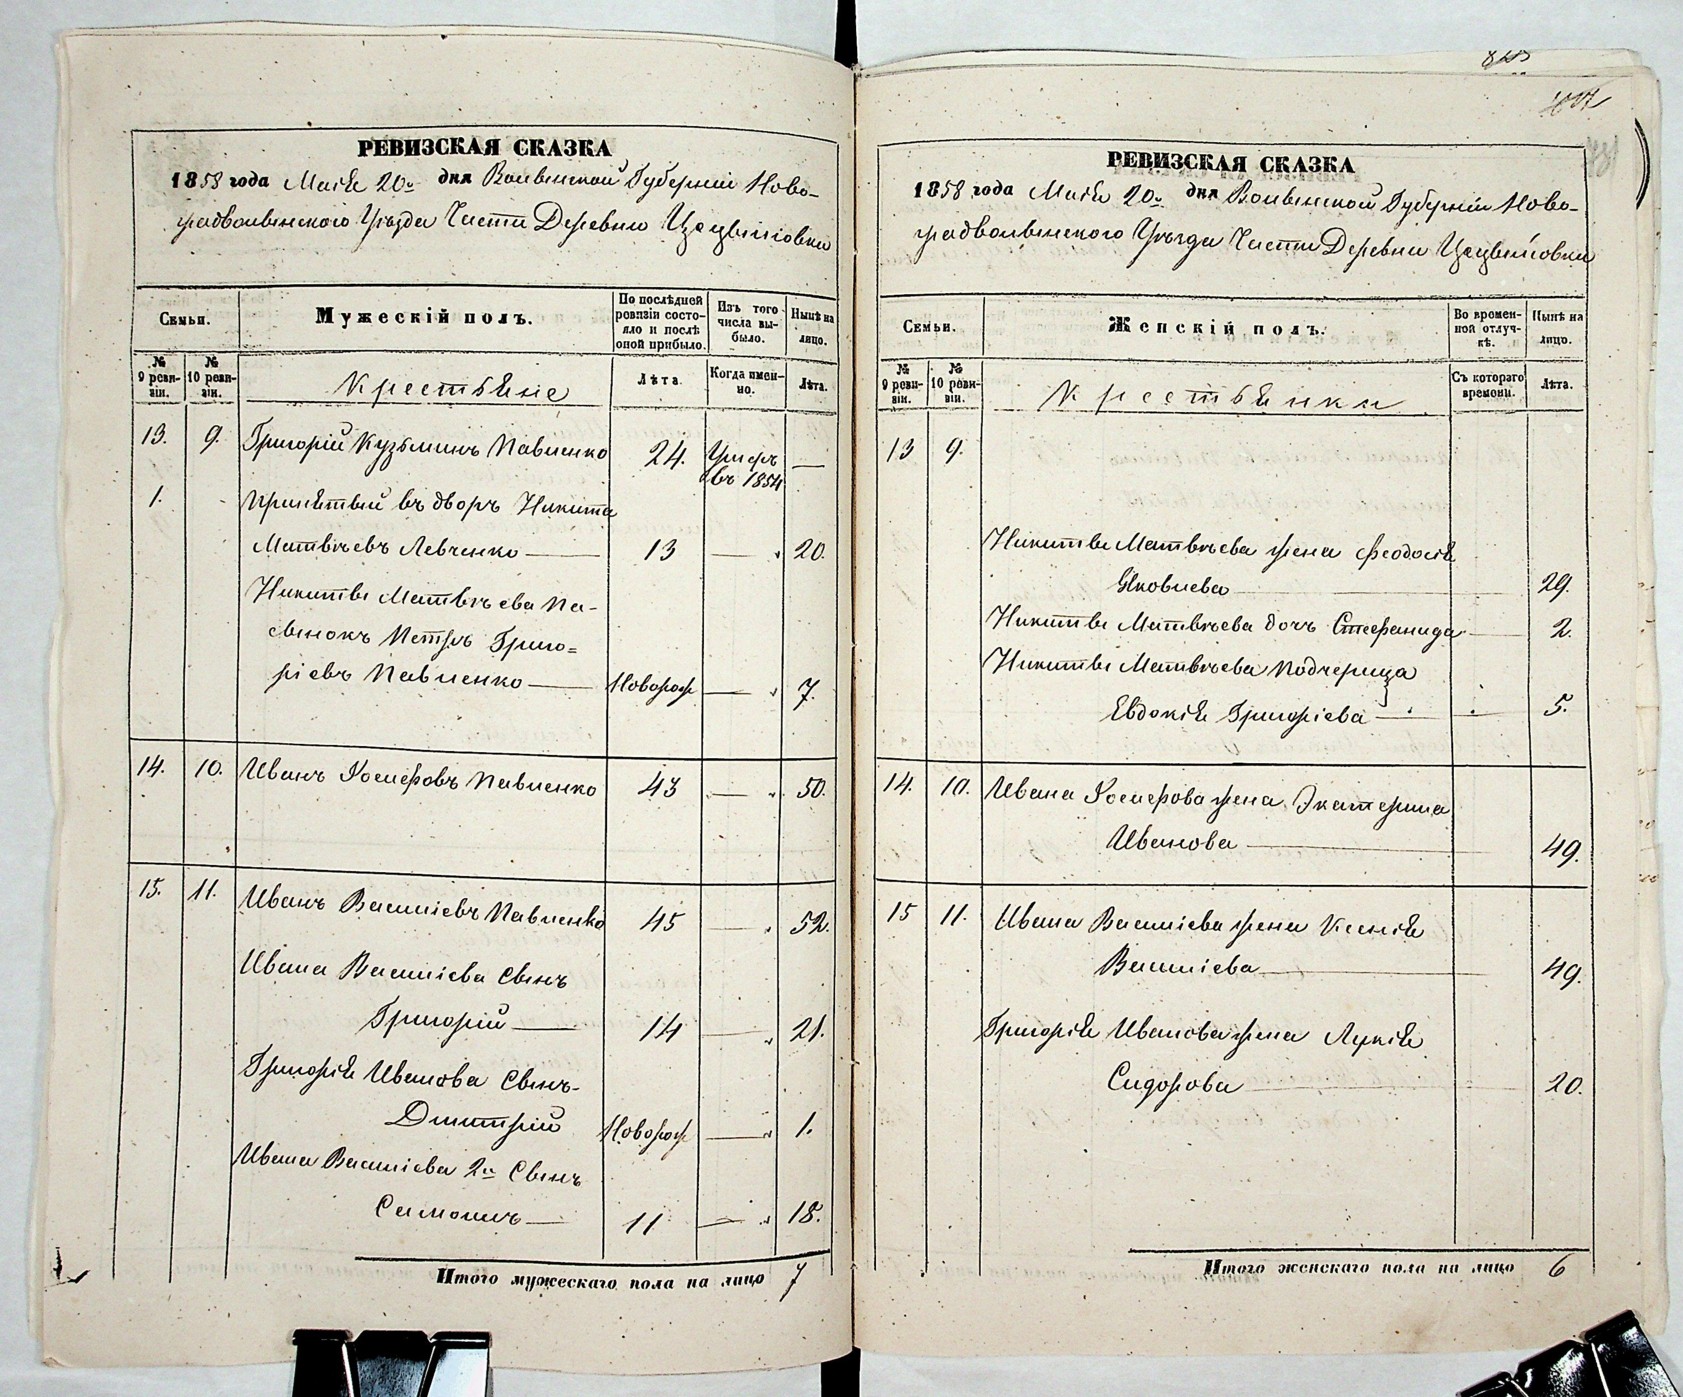 РЕВИЗСКАЯ СКАЗКА
1858 года Маія 20го дня Волынской Губерніи Ново-
градволынского Уѣзда Части Деревни Цецылiовки
Семьи.
Мужескій полъ.
По послѣдней ревизіи состо-
яло и послѣ оной прибыло.
Изъ того числа вы-
было.
Нынѣ на лицо.
№ 9 реви-
зіи.
№ 10 реви-
зіи.
Крестьяне
Лѣта.
Когда имен-
но.
Лѣта.
13. 9. Григорій Кузьминъ Павленко 24. Умеръ —
въ 1854
1. Принятый въ дворъ Никита
Матвѣевъ Левченко — 13 — 20.
Никиты Матвѣева па-
сынокъ Петръ Григо=
ріевъ Павленко — Новорож — 7.
14. 10. Иванъ Павленко 43 — 50.
15. 11. Иванъ Василіевъ Павленко 45 — 52.
Ивана Василіева Сынъ
Григорій — 14 — 21.
Григорія Иванова Сынъ
Дмитрій Новорож — 1.
Ивана Василіева 2й Сынъ
Симонъ — 11 — 18.
Итого мужескаго пола на лицо 7
РЕВИЗСКАЯ СКАЗКА
1858 года Маія 20го дня Волынской Губерніи Ново-
градволынского Уѣзда Части Деревни Цецылiовки
Семьи.
Женскій полъ.
Во времен-
ной отлуч-
кѣ.
Нынѣ на лицо.
№ 9 реви-
зіи.
№ 10 реви-
зіи.
Крестьянки
Съ котораго времени.
Лѣта.
13 9.
Никиты Матвѣева жена Феодосія
Яковлева — 29.
Никиты Матвѣева дочь Стефанида — 2.
Никиты Матвѣева Подчерица
Евдокія Григоріева — 5.
14. 10. Ивана жена Екатерина
Иванова — 49.
15 11. Ивана Василіева жена Ксенія
Василіева — 49.
Григорія Иванова жена Лукія
Сидорова — 20.
Итого женскаго пола на лицо 6